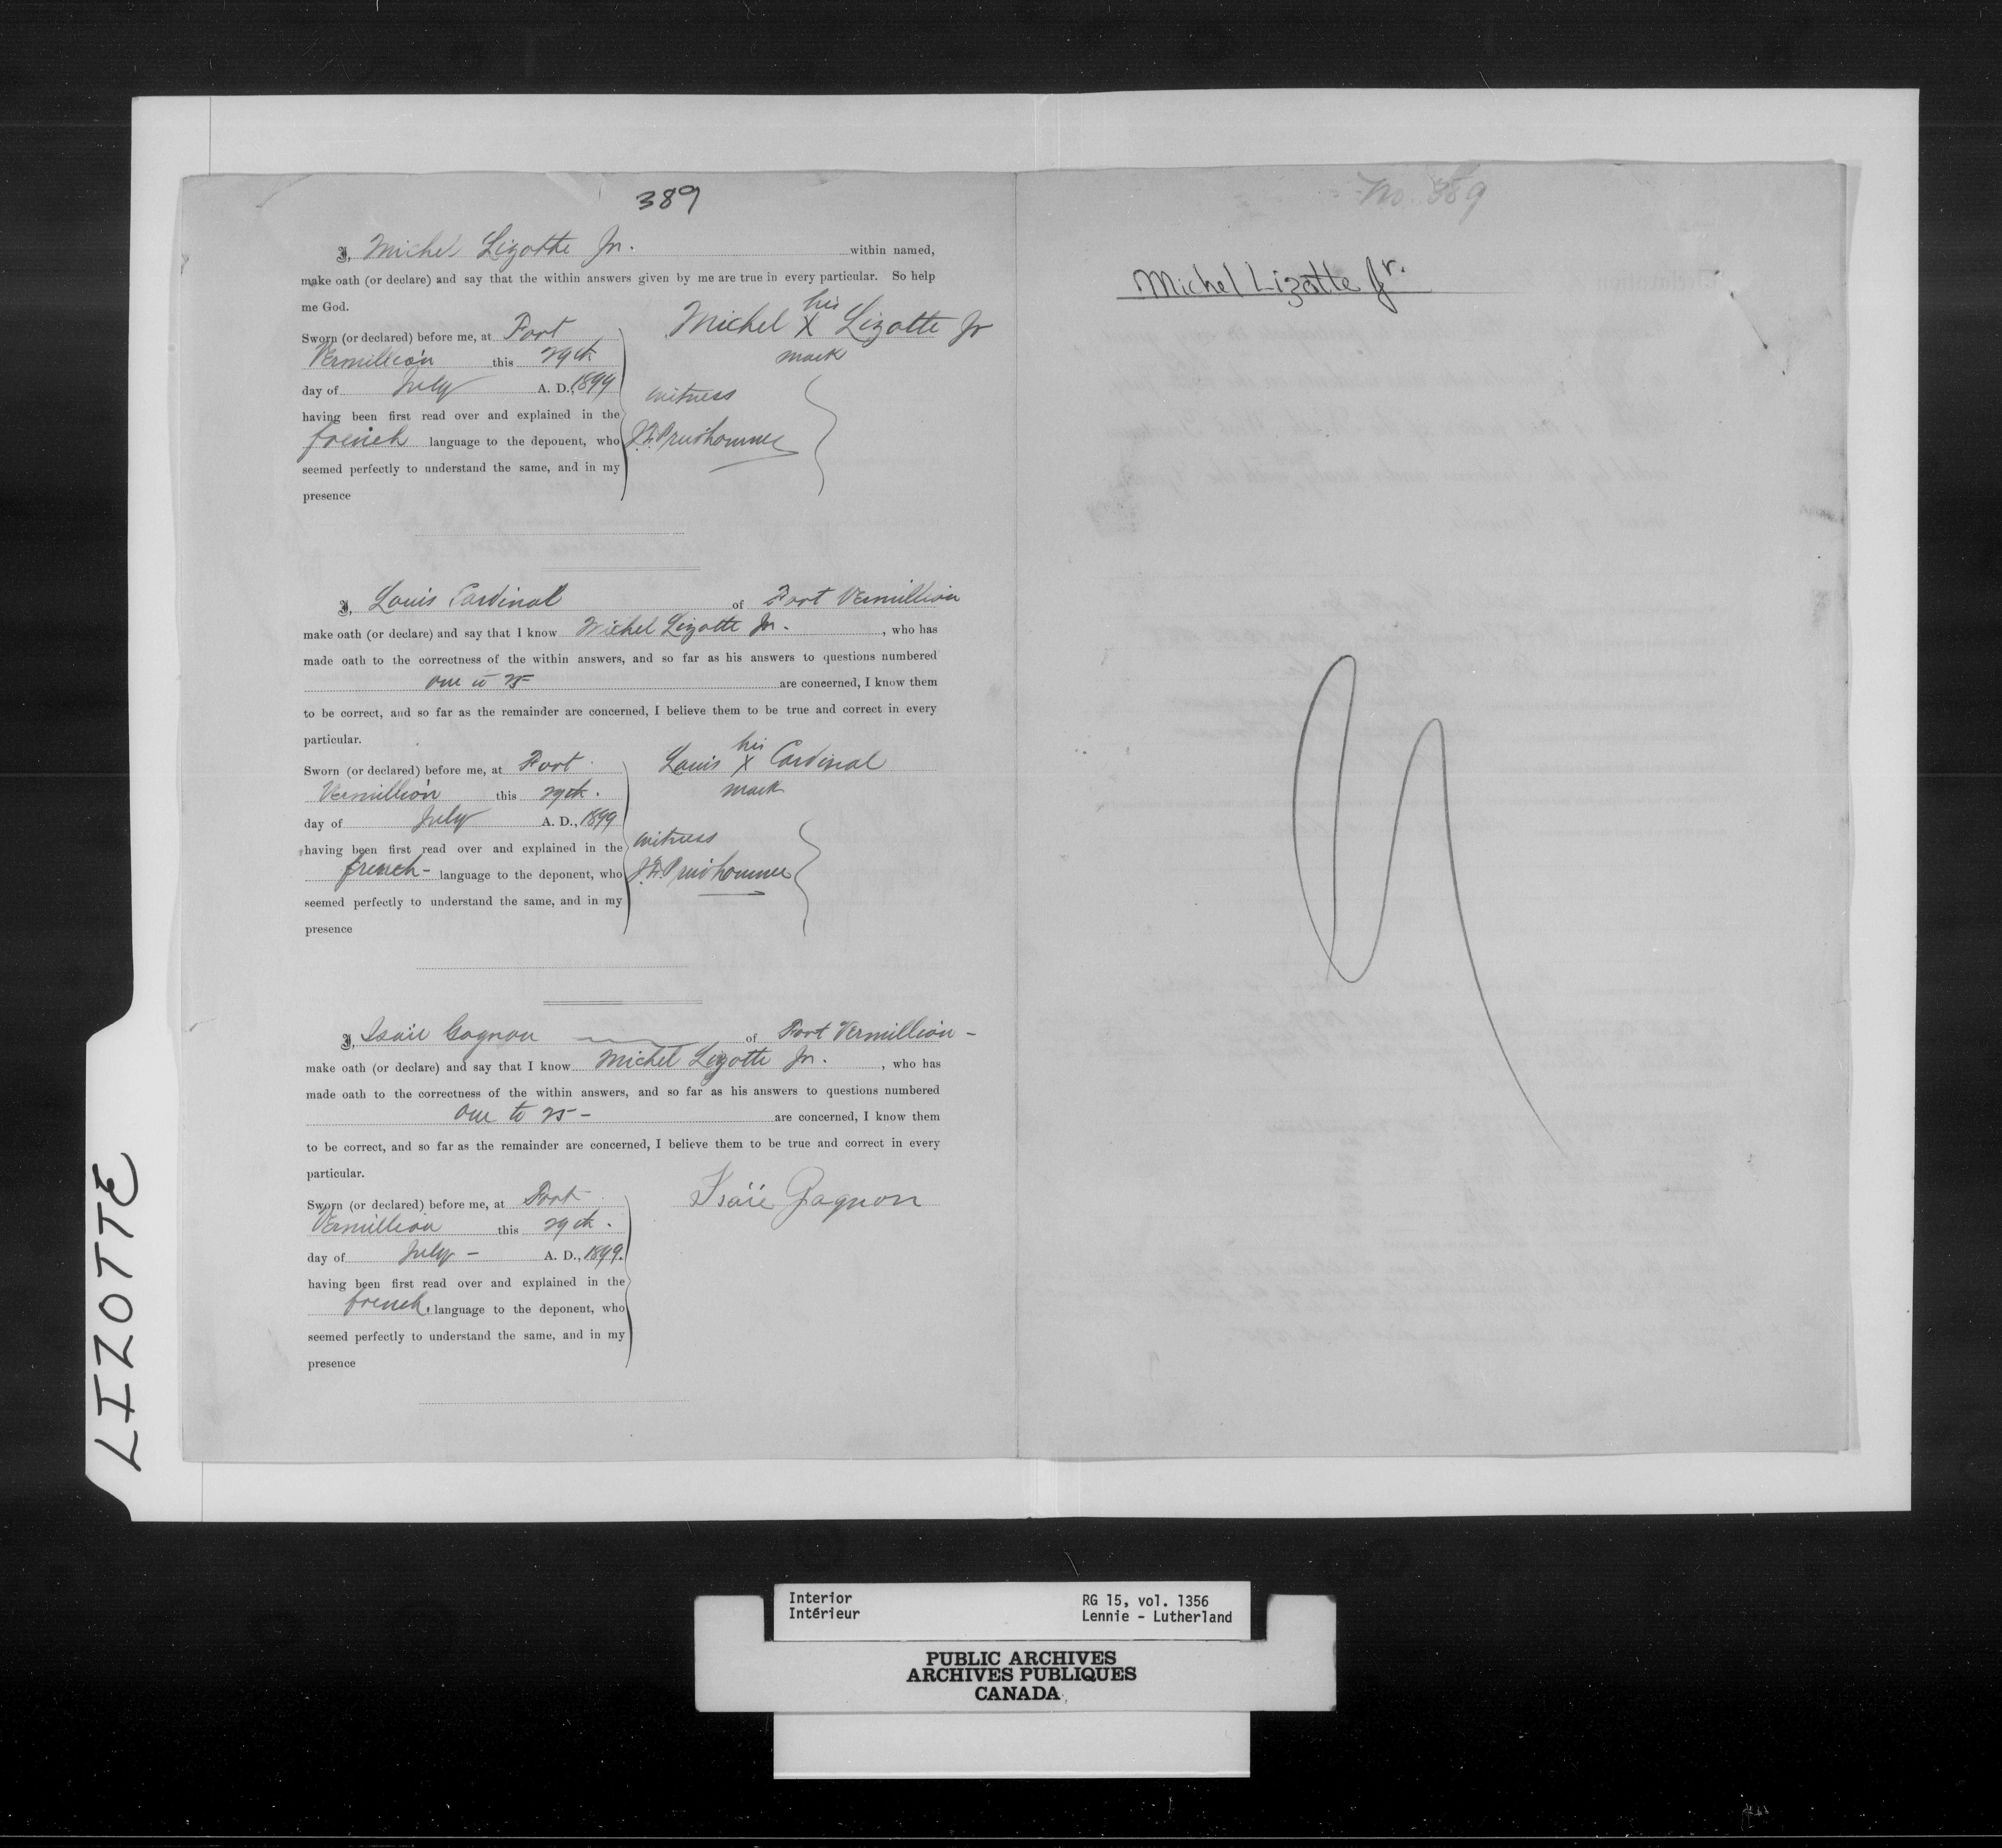 389
I, Michel Lizotte Jr. within named,
make oath (or declare) and say that the within answers given by me are true in every particular. So help
me God.
Sworn (or declared) before me, at Fort
Vermillion this 29th
day of July A. D., 1899
having been first read over and explained in the
french language to the deponent, who
seemed perfectly to understand the same, and in my
presence
his
Michel X Lizotte Jr
mark
witness
J.F. Prud'homme
I, Louis Cardinal of Fort Vermillion
make oath (or declare) and say that I know Michel Lizotte Jr. , who has
made oath to the correctness of the within answers, and so far as his answers to questions numbered
One to 25 are concerned, I know them
to be correct, and so far as the remainder are concerned, I believe them to be true and correct in every
particular.
Sworn (or declared) before me, at Fort
Vermillion this 29th.
day of July A. D., 1899
having been first read over and explained in the
french- language to the deponent, who
seemed perfectly to understand the same, and in my
presence
his
Louis X Cardinal
mark
witness
J.F. Prud'homme
I, Isaïe Gagnon of Fort Vermillion -
make oath (or declare) and say that I know Michel Lizotte Jr. , who has
made oath to the correctness of the within answers, and so far as his answers to questions numbered
One to 25 - are concerned, I know them
to be correct, and so far as the remainder are concerned, I believe them to be true and correct in every
particular.
Sworn (or declared) before me, at Fort
Vermillion this 29th.
day of July - A. D., 1899.
having been first read over and explained in the
french, language to the deponent, who
seemed perfectly to understand the same, and in my
presence
Isaïe Gagnon
No. 389
Michel Lizotte Jr.
LIZOTTE
Interior
Intérieur
RG 15, vol. 1356
Lennie - Lutherland
PUBLIC ARCHIVES
ARCHIVES PUBLIQUES
CANADA